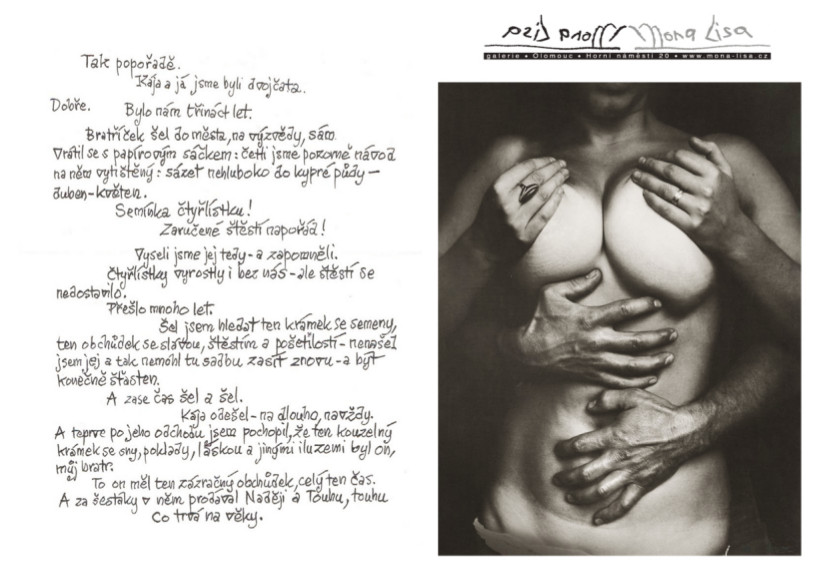 Tak popořadě.
Kája a já jsme byli dvojčata.
Dobře.
Bylo nám třináct let.
Bratříček šel do města, na výzvědy, sám.
Vrátil se s papírovým sáčkem: četli jsme pozorně návod
na něm vytištěný: sázet nehluboko do kypré půdy –
duben - květen.
Semínka čtyřlístku!
Zaručené štěstí napořád!
Vyseli jsme jej tedy - a zapomněli.
Čtyřlístky vyrostly i bez nás - ale štěstí se
nedostavilo.
Přešlo mnoho let.
Šel jsem hledat ten krámek se semeny,
ten obchůdek se slávou, štěstím a pošetilostí - nenašel
jsem jej a tak nemohl tu sadbu zasít znovu - a být
konečně šťasten.
A zase čas šel a šel.
Kája odešel - na dlouho, navždy.
A teprve po jeho odchodu jsem pochopil, že ten kouzelný
krámek se sny, poklady, láskou a jinými iluzemi byl on,
můj bratr.
To on měl ten zázračný obchůdek, celý ten čas.
A za šestáky v něm prodával Naději a Touhu, touhu
co trvá na věky.
Mona Lisa Mona Lisa
galerie • Olomouc • Horní náměstí 20 • www.mona-lisa.cz